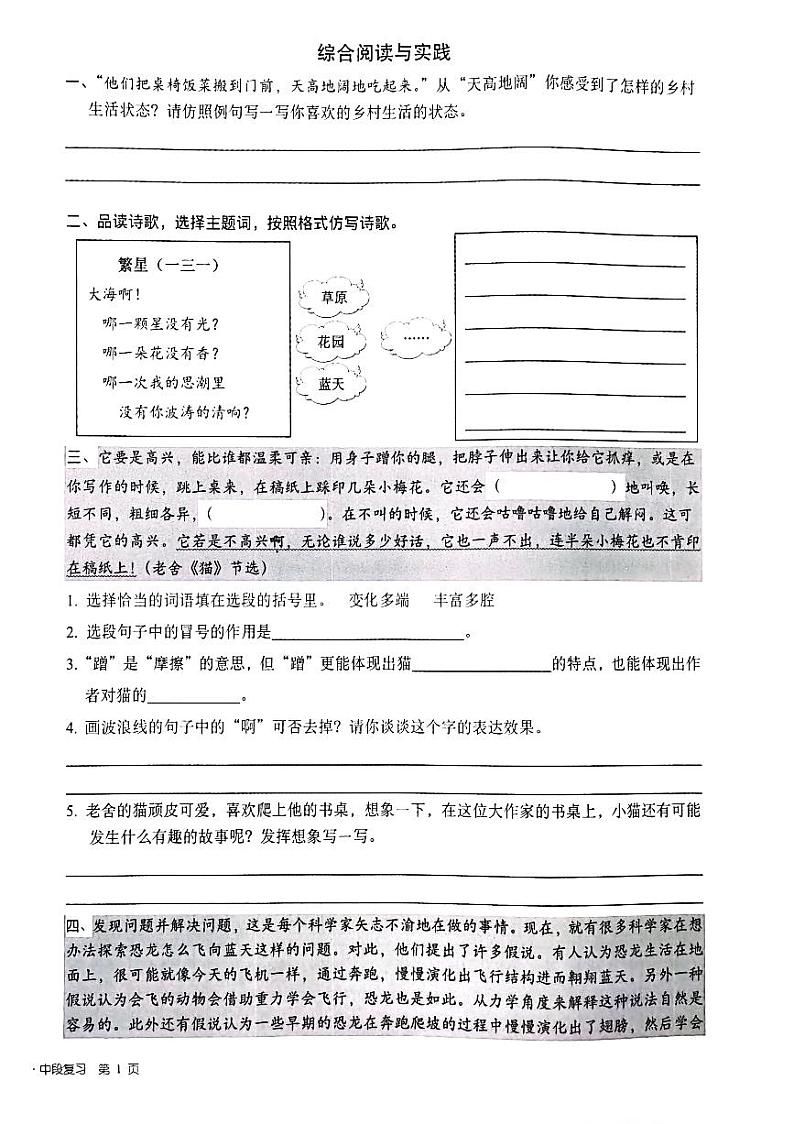 综合阅读与实践
一、“他们把桌椅饭菜搬到门前，天高地阔地吃起来。”从“天高地阔”你感受到了怎样的乡村
生活状态？请仿照例句写一写你喜欢的乡村生活的状态。
二、品读诗歌，选择主题词，按照格式仿写诗歌。
繁星（一三一）
大海啊！
哪一颗星没有光？
哪一朵花没有香？
哪一次我的思潮里
没有你波涛的清响？
草原
花园
蓝天
……
三、它要是高兴，能比谁都温柔可亲：用身子蹭你的腿，把脖子伸出来让你给它抓痒，或是在
你写作的时候，跳上桌来，在稿纸上踩印几朵小梅花。它还会（ ）地叫唤，长
短不同，粗细各异，（ ）。在不叫的时候，它还会咕噜咕噜地给自己解闷。这可
都凭它的高兴。它若是不高兴啊，无论谁说多少好话，它也一声不出，连半朵小梅花也不肯印
在稿纸上！（老舍《猫》节选）
1. 选择恰当的词语填在选段的括号里。 变化多端 丰富多腔
2. 选段句子中的冒号的作用是____。
3. “蹭”是“摩擦”的意思，但“蹭”更能体现出猫____的特点，也能体现出作
者对猫的____。
4. 画波浪线的句子中的“啊”可否去掉？请你谈谈这个字的表达效果。
5. 老舍的猫顽皮可爱，喜欢爬上他的书桌，想象一下，在这位大作家的书桌上，小猫还有可能
发生什么有趣的故事呢？发挥想象写一写。
四、发现问题并解决问题，这是每个科学家矢志不渝地在做的事情。现在，就有很多科学家在想
办法探索恐龙怎么飞向蓝天这样的问题。对此，他们提出了许多假说。有人认为恐龙生活在地
面上，很可能就像今天的飞机一样，通过奔跑，慢慢演化出飞行结构进而翱翔蓝天。另外一种
假说认为会飞的动物会借助重力学会飞行，恐龙也是如此。从力学角度来解释这种说法自然是
容易的。此外还有假说认为一些早期的恐龙在奔跑爬坡的过程中慢慢演化出了翅膀，然后学会
·中段复习 第 1 页